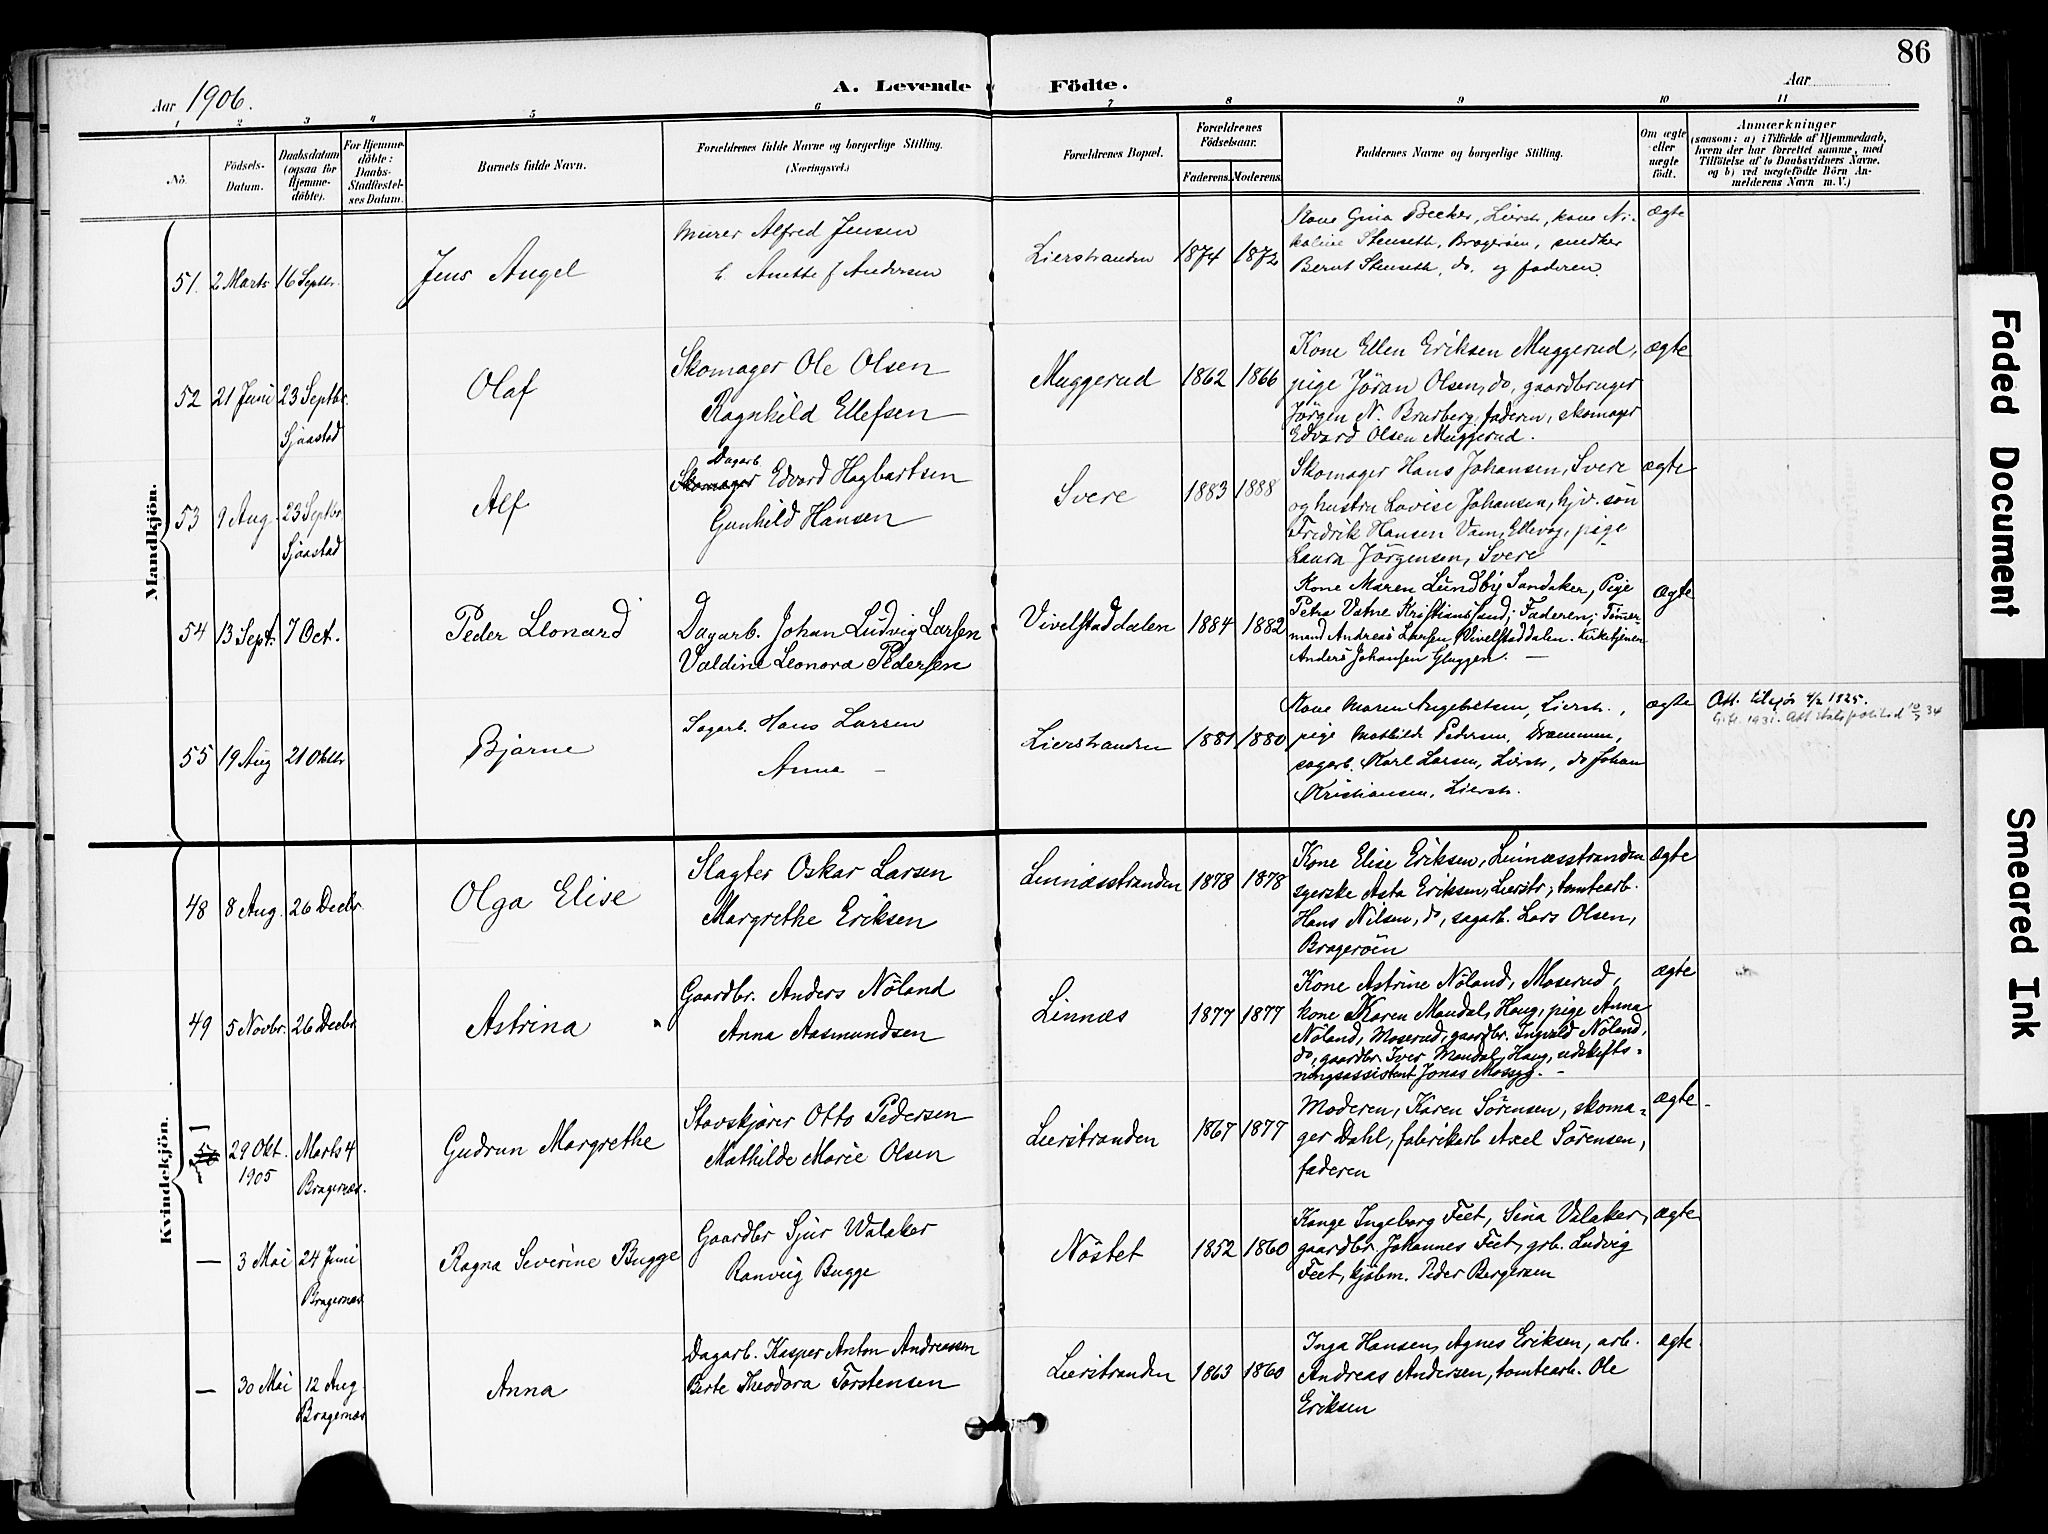 86
Aar 1906.
A. Levende Födte.
Aar
1 2 3 4 5 6 7 8 9 10 11
No.
Födsels-Datum.
Daabsdatum (ogsaa for Hjemme-döbte).
For Hjemme-döbte: Daabs-Stadfæstel-ses Datum.
Barnets fulde Navn.
Forældrenes fulde Navne og borgerlige Stilling.
(Næringsvei.)
Forældrenes Bopæl.
Forældrenes Födselsaar.
Faderens. Moderens.
Faddernes Navne og borgerlige Stilling.
Om ægte eller uægte födt.
Anmærkninger
(saasom: a) i Tilfælde af Hjemmedaab, hvem der har forrettet samme, med Tilföielse af to Daabsvidners Navne, og b) ved uægtefödte Börn An-melderens Navn m. V.)
Mandkjön.
51. 2 Marts 16 Septbr. Jens Angel
Murer Alfred Jensen
h. Anette f Andersen
Lierstranden 1874 1872
Kone Gina Becker, Lierstr, kone Ni-
koline Stenseth, Bragerøen, snedker
Bernt Stenseth, do. og faderen.
ægte
52 21 Juni 23 Septbr. Sjaastad Olaf
Skomager Ole Olsen
Ragnhild Ellefsen
Muggerud 1862 1866
Kone Ellen Eriksen Muggerud,
pige Jöran Olsen, do, gaardbruger
Jörgen N. Brarberg, faderen, skomager
Edvard Olsen Muggerud.
ægte
53 9 Aug. 23 Septbr Sjaastad Alf
Dagarb
Skomager Edvard Hagbartsen
Gunhild Hansen
Svere 1883 1888
Skomager Hans Johansen, Svere
og hustru Lovise Johansen, hjv. søn
Fredrik Hansen Vam, Ellevog, pige
Laura Jörgensen, Svere
ægte
54 13 Sept. 7 Oct. Peder Leonard
Dagarb. Johan Ludvig Larsen
Valdine Leonora Pedersen
Vivelstaddalen 1884 1882
Kone Maren Lundby Sandaker, Pige
Petra Vatne Kristianssand; Faderen; Tömmer
mand Andreas Larsen Vivelstaddalen. Kirketjener
Anders Johansen Gluggen. —
ægte
55 19 Aug 21 Oktbr Bjarne
Sagarb. Hans Larsen
Anna —
Lierstranden 1881 1880
Kone Maren Ingebretsen, Lierstr.,
pige Mathilde Pedersen, Drammen,
sagarb. Karl Larsen, Lierstr, do Johan
Kristiansen, Lierstr.
ægte
Att. til sjøs 4/2 1925.
Gift 1931. Att statspolitid 10/7 34
Kvindekjön.
48 8 Aug. 26 Decbr Olga Elise
Slagter Oskar Larsen
Margrethe Eriksen
Linnæsstranden 1878 1878
Kone Elise Eriksen, Linnæsstranden
syerske Asta Eriksen, Lierstr; tomtearb.
Hans Nilsen, do, sagarb. Lars Olsen,
Bragerøen
ægte
49 5 Novbr. 26 Decbr Astrina
Gaardbr. Anders Nöland
Anna Aasmundsen
Linnæs 1877 1877
Kone Astrine Nöland, Moserud,
kone Karen Mandal, Haug, pige Anna
Nöland, Moserud, gaardbr. Ingvald Nöland,
do, gaardbr. Iver Mandal, Haug, udskift-
ningsassistent Jonas Mossyg. —
ægte
— 50 29 Okt. 1905 Marts 4 Bragernæs. Gudrun Margrethe
Stavskjører Otto Pedersen
Mathilde Marie Olsen
Lierstranden 1867 1877
Moderen, Karen Sørensen, skoma-
ger Dahl, fabrikarb Axel Sörensen,
faderen
ægte
— 3 Mai 24 Juni Bragernæs Ragna Severine Bugge
Gaardbr Sjur Walaker
Ranveig Bugge
Nöstet 1852 1860
Kange Ingeborg Feet, Sina Valaker,
gaardbr. Johannes Feet, grb. Ludvig
Feet, kjöbm. Peder Bergersen
ægte
— 30 Mai 12 Aug. Bragernæs Anna
Dagarb. Kasper Anton Andreassen
Berte Theodora Torstensen
Lierstranden 1863 1860
Inga Hansen, Agnes Eriksen, arb.
Andreas Andersen, tomtearb. Ole
Eriksen
ægte.
Faded Document
Smeared Ink